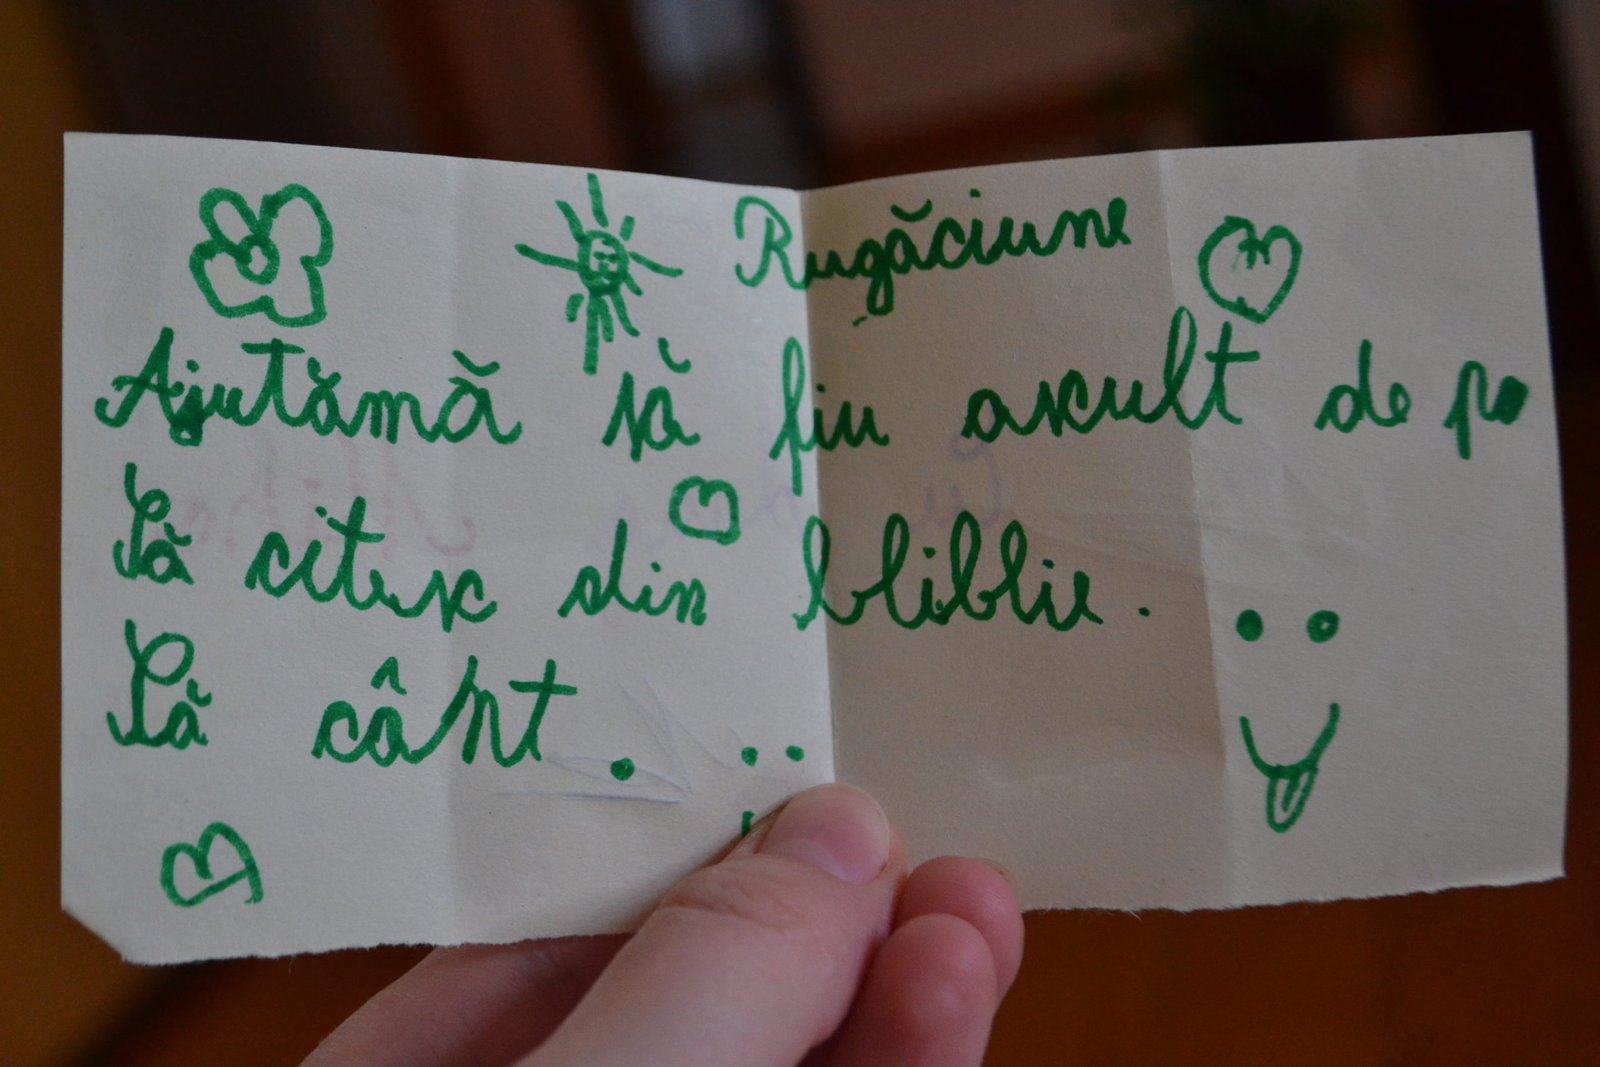 Rugăciune
Ajutămă să fiu ascult de
Să citesc din bliblie.
Să cânt.